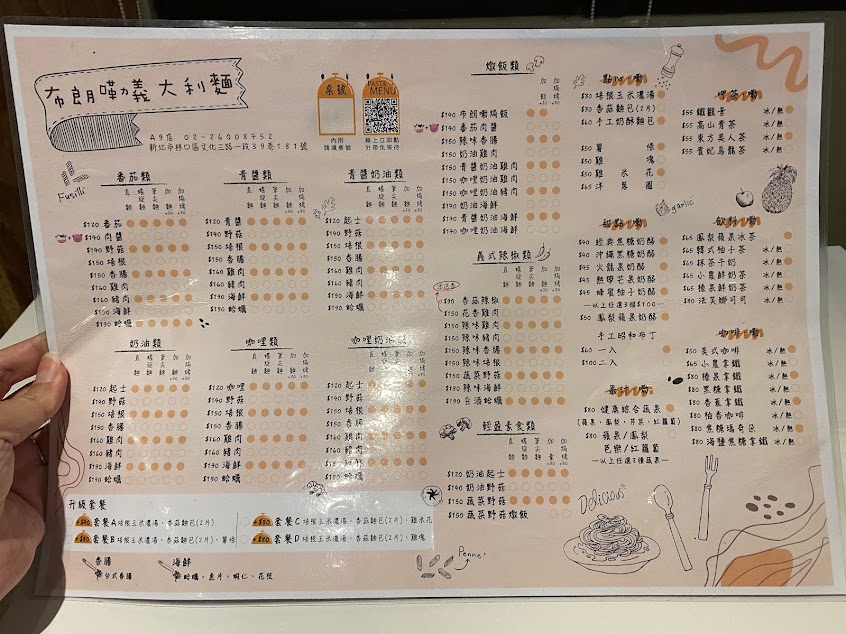 布朗嘜義大利麵
A9店 02-26008752
新北市林口區文化三路一段39巷181號
桌號
內用
請填桌號
PASTA
MENU
線上立即點
外帶免等待
Fusilli
番茄類
直麵 螺旋麵 筆尖麵 加麵+20 加焗烤+50
$120 番茄
$140 肉醬
$140 野菇
$150 培根
$150 香腸
$160 雞肉
$160 豬肉
$190 海鮮
$190 蛤蠣
青醬類
$120 青醬
$140 野菇
$150 培根
$150 香腸
$160 雞肉
$160 豬肉
$190 海鮮
$190 蛤蠣
青醬奶油類
$120 起士
$140 野菇
$150 培根
$150 香腸
$160 雞肉
$160 豬肉
$190 海鮮
$190 蛤蠣
奶油類
$120 起士
$140 野菇
$150 培根
$150 香腸
$160 雞肉
$160 豬肉
$190 海鮮
$190 蛤蠣
咖哩類
$120 咖哩
$140 野菇
$150 培根
$150 香腸
$160 雞肉
$160 豬肉
$190 海鮮
$190 蛤蠣
咖哩奶油類
$120 起士
$140 野菇
$150 培根
$150 香腸
$160 雞肉
$160 豬肉
$190 海鮮
$190 蛤蠣
升級套餐
套餐A 培根玉米濃湯、香菇麵包(2片)
套餐B 培根玉米濃湯、香菇麵包(2片)、薯條
+$80 套餐C 培根玉米濃湯、香菇麵包(2片)、雞米花
+$80 套餐D 培根玉米濃湯、香菇麵包(2片)、雞塊
香腸
台式香腸
海鮮
蛤蠣、魚片、蝦仁、花枝
Penne
燉飯類
$140 番茄肉醬
$150 辣味香腸
$150 奶油雞肉
$150 青醬奶油雞肉
$150 咖哩奶油雞肉
$190 咖哩奶油豬肉
$190 奶油海鮮
$190 青醬奶油海鮮
$190 咖哩奶油海鮮
義式辣椒類
$90 蒜菇辣椒
$150 花香雞肉
$150 辣味雞肉
$150 辣味豬肉
$150 辣味香腸
$150 辣味培根
$150 蔬菜野菇
$190 辣味海鮮
$190 白酒蛤蠣
輕盈素食類
$120 奶油起士
$140 奶油野菇
$150 蔬菜野菇
$150 蔬菜野菇燉飯
點心嘞
$30 培根玉米濃湯
$30 香菇麵包(2片)
$60 手工奶酥麵包
$50 薯條
$50 雞塊
$50 雞米花
$65 洋蔥圈
garlic
甜點嘞
$40 經典焦糖奶酪
$40 沖繩黑糖奶酪
$45 火龍果奶酪
$45 熱帶芒果奶酪
$45 蜂蜜柚子奶酪
—以上任選3種$100—
$50 鳳梨蘋果奶酪
手工昭和布丁
$60 一入
$100 二入
果汁嘞
$80 健康綜合蔬果
(蘋果、鳳梨、芹菜、紅蘿蔔)
$80 蘋果/鳳梨
芭樂/紅蘿蔔
—以上任選2種蔬果—
Delicious
喫茶嘞
$55 鐵觀音 冰/熱
$55 高山青茶 冰/熱
$55 東方美人茶 冰/熱
$55 貴妃烏龍茶 冰/熱
飲料嘞
$65 鳳梨蘋果冰茶
$65 韓式柚子茶 冰/熱
$65 抹茶牛奶 冰/熱
$65 小農鮮奶茶 冰/熱
$65 榛果鮮奶茶 冰/熱
$80 法芙娜可可 冰/熱
咖啡嘞
$50 美式咖啡 冰/熱
$65 小農拿鐵 冰/熱
$80 榛果拿鐵 冰/熱
$80 黑糖拿鐵 冰/熱
$80 香蕉拿鐵 冰/熱
$80 柚香咖啡 冰/熱
$80 焦糖瑪奇朵 冰/熱
$80 海鹽焦糖拿鐵 冰/熱